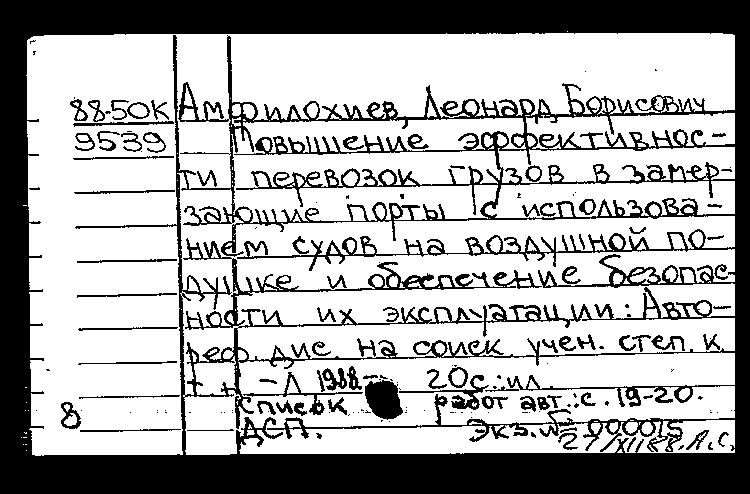 88-50К Амфилохиев, Леонард Борисович.
9539 Повышение эффективнос-
ти перевозок грузов в замер-
зающие порты с использова-
нием судов на воздушной по-
душке и обеспечение безопас-
ности их эксплуатации: Авто-
реф. дис. на соиск. учен. степ. к.
т. н. - Л 1988 - 20с.: ил.
Список работ авт.: с. 19-20.
8 ДСП. Экз. № 000015
27/XII 88. А.С.